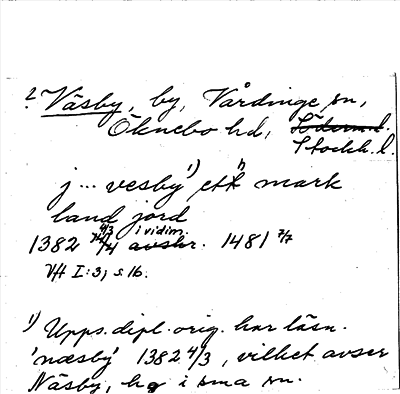 ? Väsby, by, Vårdinge sn,
Öknebo hd, Söderm.l.
Stockh. l.
j … vesby 1) ett mark
land jord
1382 4/3 i vidim. 1481 7/7
VH I:3, s 16.
1) Upps. dipl. orig. har läsn.
'næsby' 1382 4/3, vilket avser
Näsby, hg i sma sn.